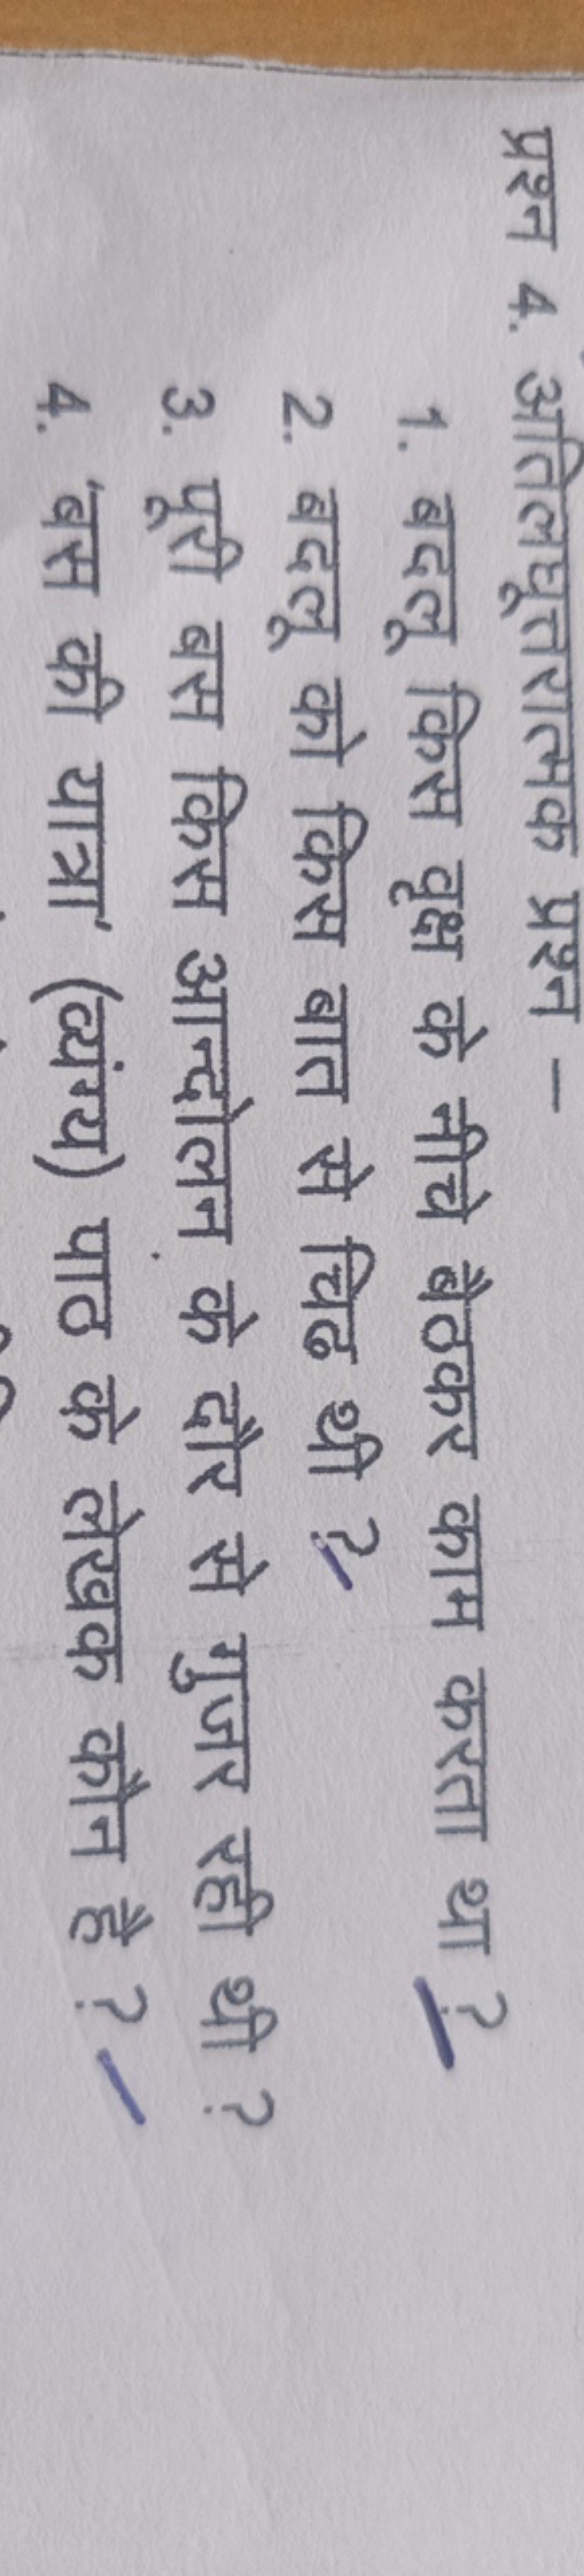 प्रश्न 4. अतिलघूत्तरात्मक प्रश्न –
1. बदलू किस वृक्ष के नीचे बैठकर काम करता था ?
2. बदलू को किस बात से चिढ थी ?
3. पूरी बस किस आन्दोलन के दौर से गुजर रही थी ?
4. 'बस की यात्रा' (व्यंग्य) पाठ के लेखक कौन है ?